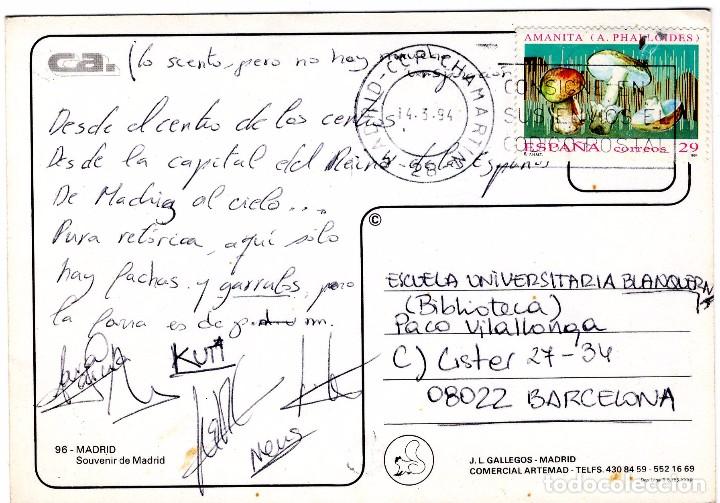 AMANITA (A. PHALLOIDES)
ESPAÑA correos 29
MADRID-CCP-CHAMARTIN
14-3-94
28
CONSIGNE EN
SUS ENVIOS EL
CODIGO POSTAL
ca.
(lo siento, pero no hay mucha
inspiración)
Desde el centro de los centros.
Desde la capital del Reino de las Españas
De Madrid al cielo...
Pura retórica, aquí sólo
hay fachas y garrulos, pero
la farra es de p. m.
KUTI
Neus
96 - MADRID
Souvenir de Madrid
©
ESCUELA UNIVERSITARIA BLANQUERNA
(Biblioteca)
Paco Vilallonga
C) Císter 27-34
08022 BARCELONA
J. L. GALLEGOS - MADRID
COMERCIAL ARTEMAD - TELFS. 430 84 59 - 552 16 69
todocoleccion